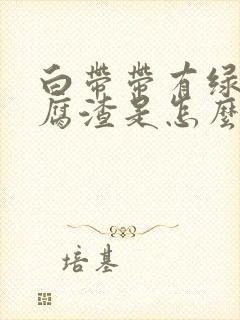 白带带有绿
腐渣是怎麼
培基